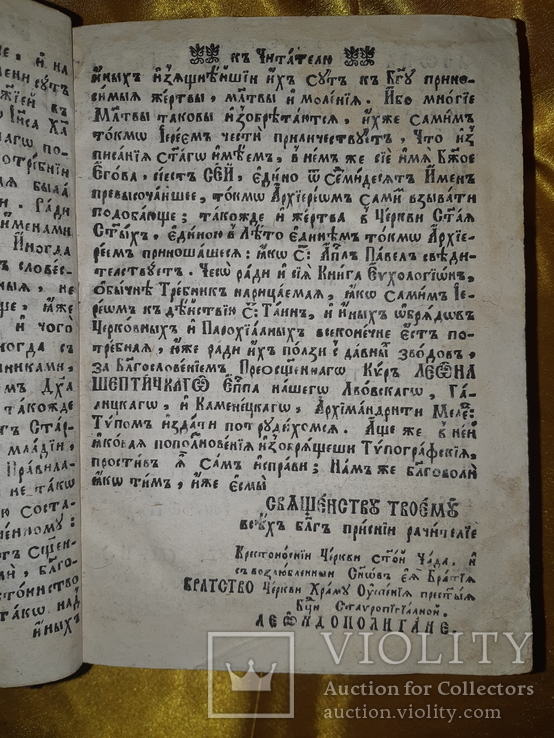 къ Читателю
иныхъ изѧщнѣйшіи ихъ сутъ къ Бг҃у прино-
симыѧ жертвы, мл҃твы и моленіѧ. Ибо многіе
Мл҃твы таковы изобрѣтаютсѧ, ихже самимъ
токмѡ Іереемъ чести приличествуетъ, Что изъ
писаніѧ ст҃агѡ имѣемъ, в немъ же сіе имѧ Бж҃ое
Егѡва, иестъ СЕЙ, едино ѿ Семидесѧт Именъ
превысочайшее, токмѡ Архіереѡмъ сами взывати
подобающе; такожде и жертва в Церкви Ст҃аѧ
Ст҃ыхъ, единою в Лѣто единѣмъ токмѡ Архіе-
реемъ приношашесѧ: ꙗкѡ Ст҃: Ап҃лъ Павелъ свѣди-
телствуетъ. Чесѡ ради и сіѧ Книга Еухологіѡнъ,
обычнѣ Требникъ нарицаемаѧ, ꙗкѡ самимъ Іе-
реѡмъ къ дѣйствію Ст҃: Таинъ, и иныхъ ѡбрѧдѡвъ
Церковныхъ и Парохіалныхъ всеконечне естъ по-
требнаѧ, иже ради ихъ ползи с давныхъ зводовъ,
за Благословеніемъ Преосщ҃еннагѡ Кѵръ ЛЕѠНА
ШЕПТИЦКАГѠ Еп҃па нашегѡ Лвовскагѡ, Га-
лицкагѡ, и Каменецкагѡ, Архімандрити Меле:
Тѵпомъ издати потрудихомсѧ. Аще же в ней
ꙗковаѧ поползновеніѧ изобрѧщеши Тѵпографскіѧ,
простивъ ѧ самъ исправи; Намъ же благоволи
ꙗкѡ тимъ, иже есмы
СВѦЩЕНСТВУ ТВОЕМУ
всѣхъ благъ присніи рачителіе
Крестоносніи Церкви ст҃ой Чада, и
съ возлюбленныи Синѡвъ еѧ Братіѧ
БРАТСТВО Церкви Храму Оуспеніѧ прест҃ыѧ
Бц҃и Ставропігіалной.
ЛЕѠНДОПОЛИТАНЕ.
сутъ
Іиса
ради
именами
Иногда
словес-
не
ꙗже
и чого
иногда съ
Дх҃а
такожде
Правила
не такѡ
благо-
такѡ над
иныхъ
VIOLITY
Auction for Collectors
auction.violity.com